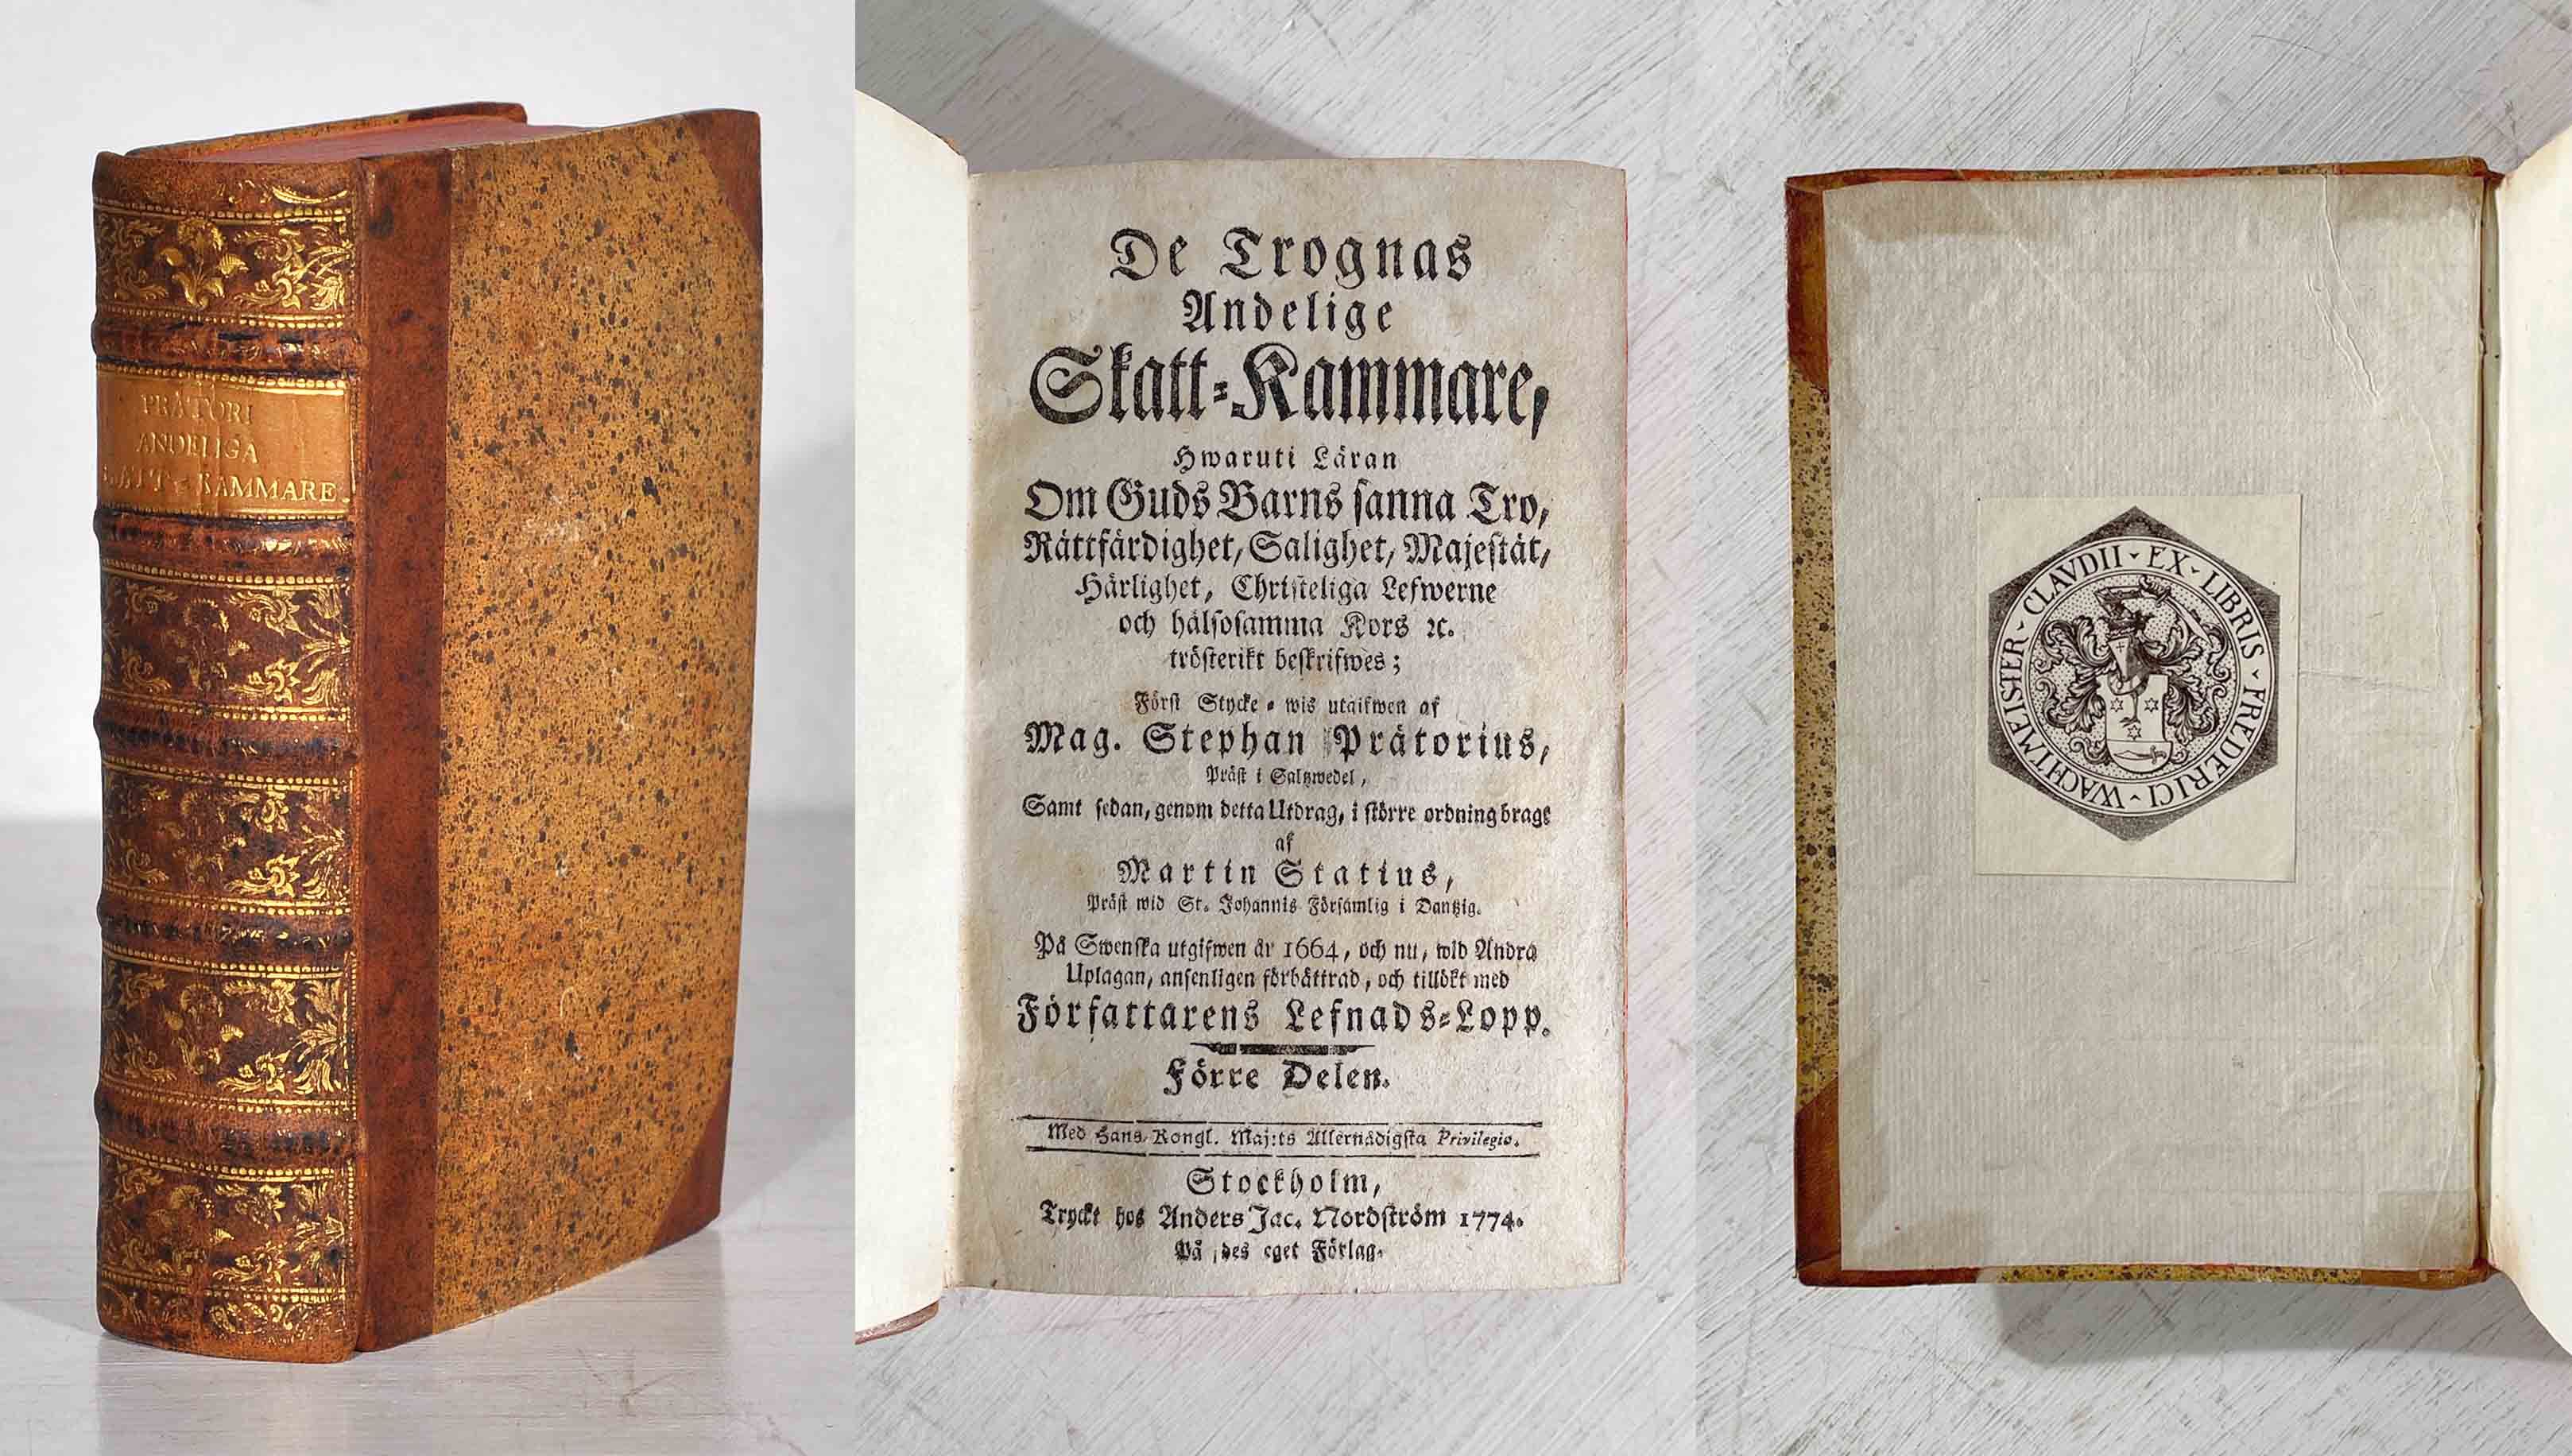 PRÆTORI
ANDELIGA
SKATT-KAMMARE.
De Trognas
Andelige
Skatt-Kammare,
Hwaruti Läran
Om Guds Barns sanna Tro,
Rättfärdighet, Salighet, Majestät,
Härlighet, Christeliga Lefwerne
och hälsosamma Kors ꝛc.
trösterikt beskrifwes;
Först Stycke-wis utgifwen af
Mag. Stephan Prätorius,
Präst i Saltzwedel,
Samt sedan, genom detta Utdrag, i större ordning bragt
af
Martin Statius,
Präst wid St. Johannis Församlig i Dantzig.
På Swenska utgifwen år 1664, och nu, wid Andra
Uplagan, ansenligen förbättrad, och tillökt med
Författarens Lefnads-Lopp.
Förre Delen.
Med Hans Kongl. Maj:ts Allernådigsta Privilegio.
Stockholm,
Tryckt hos Anders Jac. Nordström 1774.
På des eget Förlag.
EX LIBRIS FREDERICI WACHTMEISTER CLAVDII